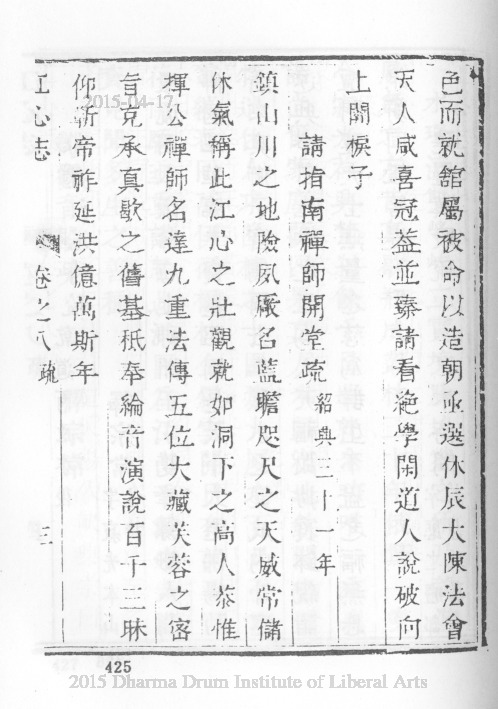 色而就舘屬被命以造朝亟選休辰大陳法會
天人咸喜冠葢並臻請看絶學閑道人說破向
上關棙子
請指南禪師開堂疏 紹興三十一年
鎮山川之地險夙厰名藍瞻咫尺之天威常儲
休氣稱此江心之壯觀就如洞下之高人恭惟
揮公禪師名達九重法傳五位大藏芙蓉之宻
旨克承真歇之舊基秪奉綸音演說百千三昧
仰祈帝祚延洪億萬斯年
江心志 卷之八 疏 三
2015-04-17
425
2015 Dharma Drum Institute of Liberal Arts